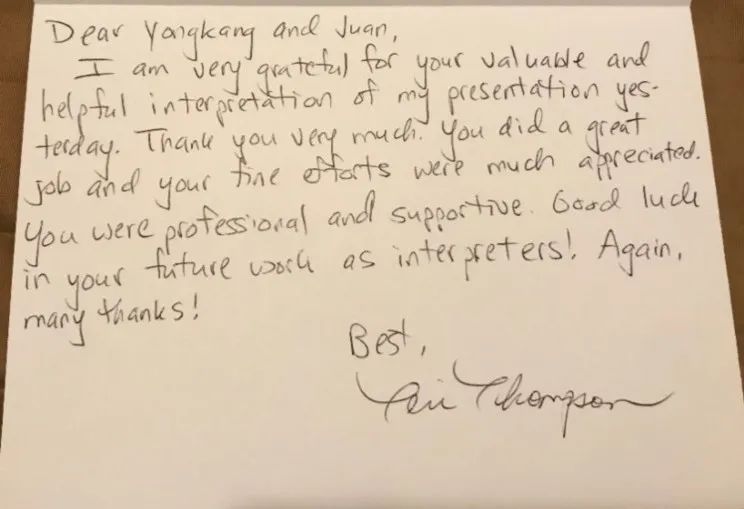 Dear Yongkang and Juan,
I am very grateful for your valuable and
helpful interpretation of my presentation yes-
terday. Thank you very much. You did a great
job and your fine efforts were much appreciated.
You were professional and supportive. Good luck
in your future work as interpreters! Again,
many thanks!
Best,
Thompson